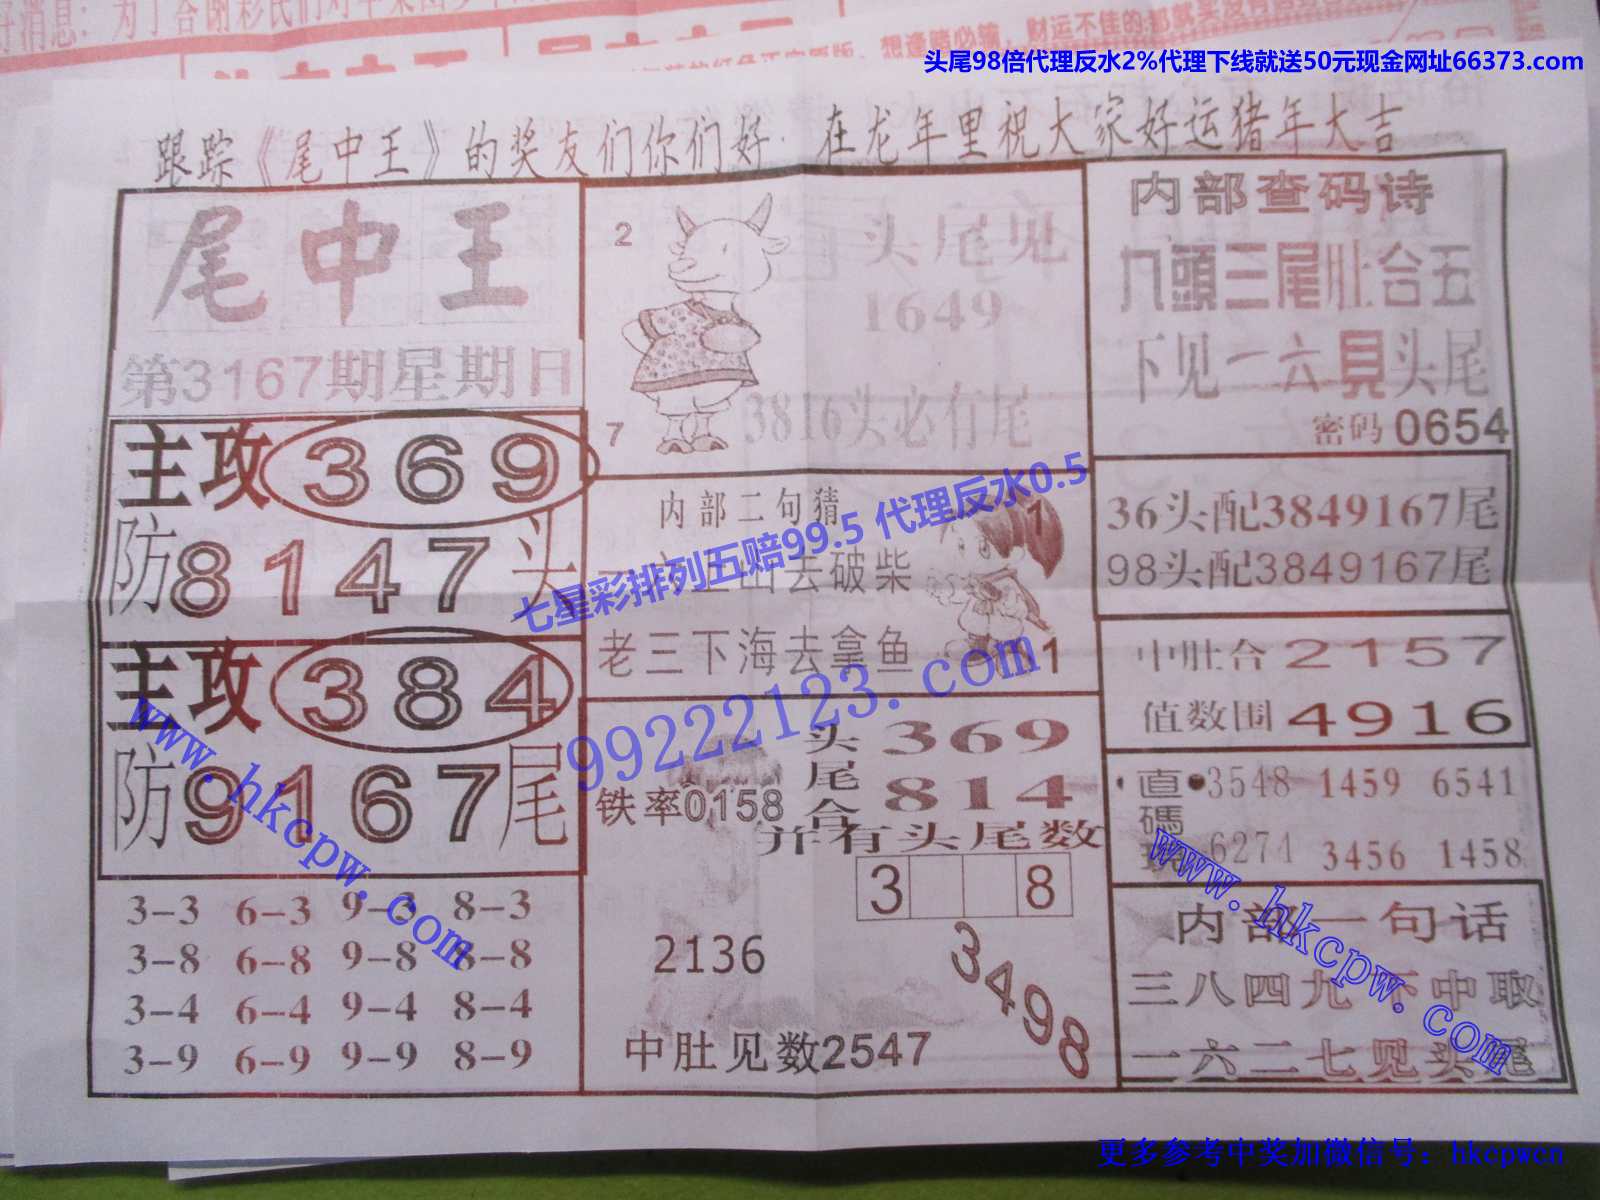 头尾98倍代理反水2%代理下线就送50元现金网址66373.com
跟踪《尾中王》的奖友们你们好 在龙年里祝大家好运猪年大吉
尾中王
第3167期星期日
主攻 369
防8147头
主攻 384
防9167尾
3-3 6-3 9-3 8-3
3-8 6-8 9-8 8-8
3-4 6-4 9-4 8-4
3-9 6-9 9-9 8-9
2
7
头尾见
1649
3816头必有尾
内部二句猜
山去破柴
老三下海去拿鱼
1
1
七星彩排列五赔99.5 代理反水0.5
99222123.com
头 369
尾
合 814
铁率0158
并有头尾数
3 8
2136
3498
中肚见数2547
内部查码诗
九頭三尾肚合五
下见一六見头尾
密码 0654
36头配3849167尾
98头配3849167尾
中肚合 2157
值数围 4916
直碼 3548 1459 6541
6274 3456 1458
内部一句话
三八四九下中取
一六二七见头尾
www.hkcpw.com
www.hkcpw.com
更多参考中奖加微信号：hkcpwcn